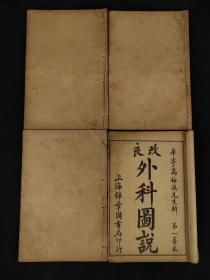 華亭高梅溪先生輯 第一善本
改良
外科圖說
上海錦章圖書局印行